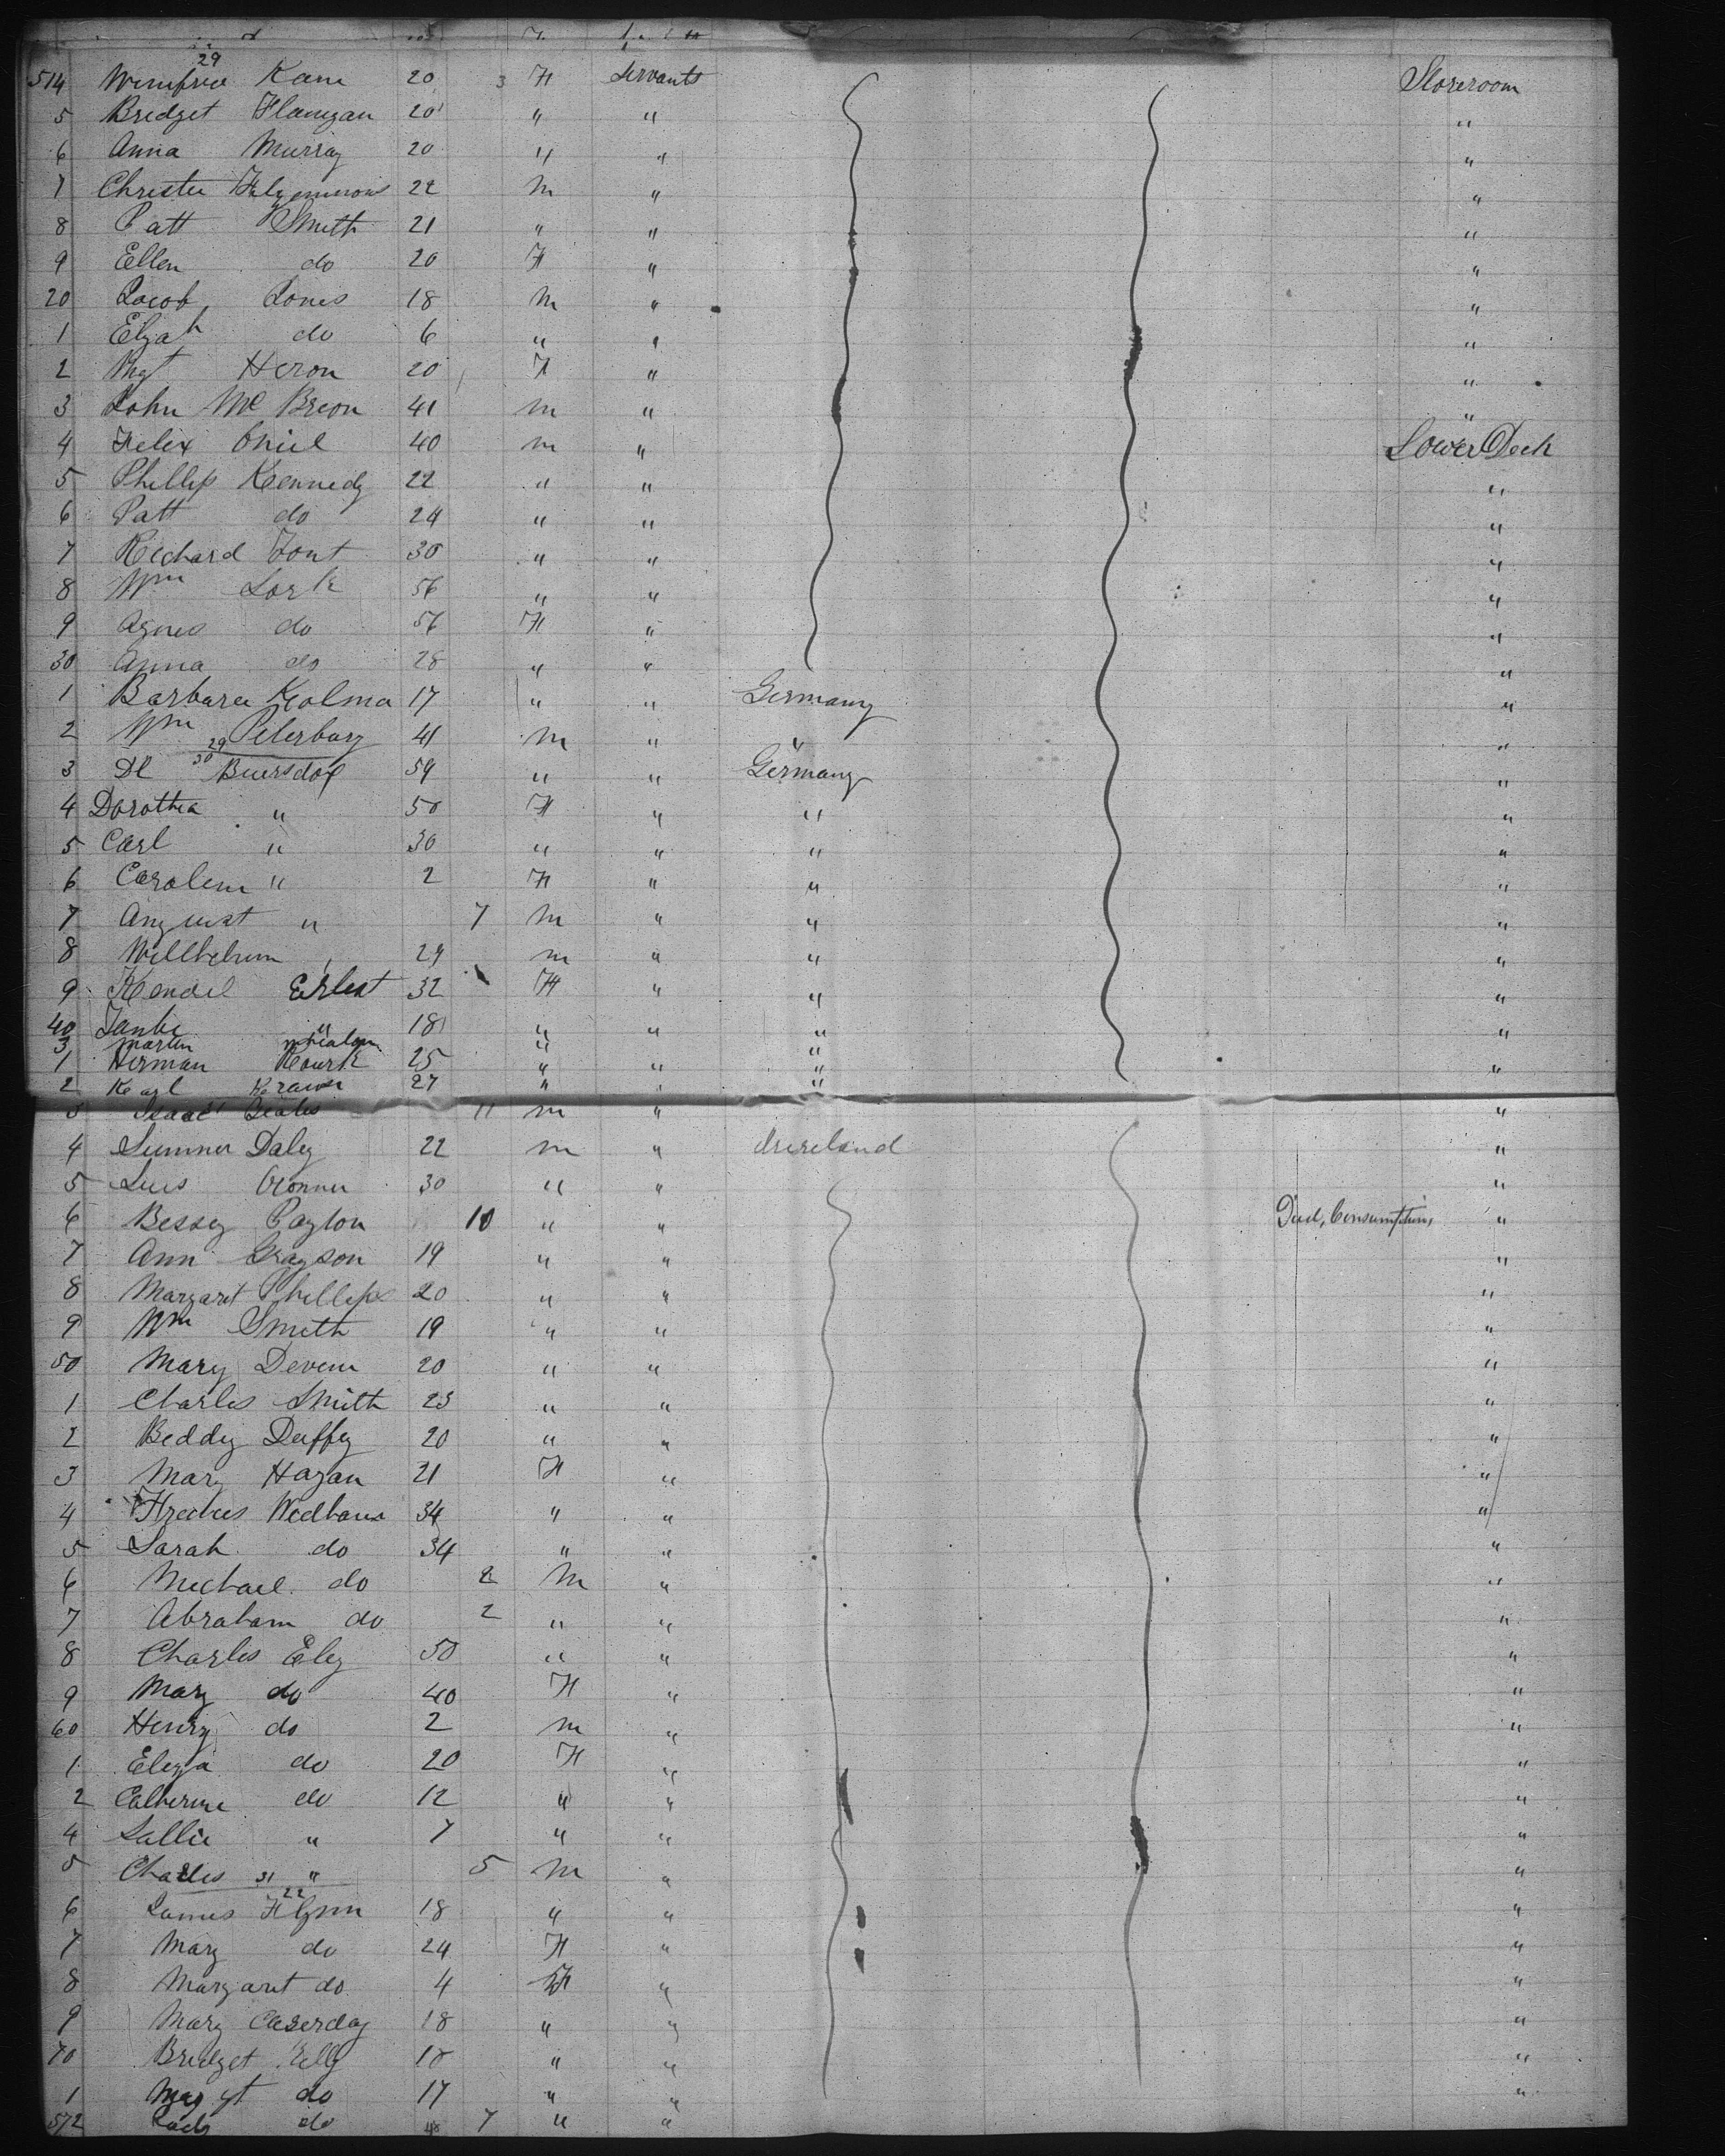 29
514 Winifred Kane 20 3 F Servants Storeroom
5 Bridget Flanigan 20 " " "
6 Anna Murray 20 " " "
7 Christee 22 M " "
8 Patt Smith 21 " " "
9 Ellen do 20 F " "
20 Jacob Jones 18 M " "
1 Elijah do 6 " " "
2 Mgt Heron 20 F " "
3 John Mc Breon 41 M " "
4 Felix Oniel 40 M " Lower Deck
5 Phillip Kennedy 22 " " "
6 Patt do 24 " " "
7 Richard Font 30 " " "
8 Wm 56 " " "
9 Agnes do 56 F " "
30 Anna do 28 " " "
1 Barbara Kolma 17 " " Germany "
2 Wm Peterburg 41 M " " "
29
30
3 Buersdof 59 " " Germany "
4 Dorothea " 50 F " " "
5 Carl " 30 " " " "
6 Carolem " 2 F " " "
7 August " 7 M " " "
8 Willhelum " 29 M " " "
9 Kendel Erlest 32 F " " "
40 " 18 " " " "
3 Martin " "
1 Herman 25 " " " "
2 Karl Krauser 27 " " "
3 Isaac Beales 11 M " "
4 Sumner Daley 22 M " Irireland "
5 Luis Oronner 30 " " "
6 Bessey Paylon 10 " " Died, Consumption, "
7 Ann Grayson 19 " " "
8 Margaret Phillips 20 " " "
9 Wm Smith 19 " " "
50 Mary Deven 20 " " "
1 Charles Smith 23 " " "
2 Beddy Duffy 20 " " "
3 Mary Hagan 21 F " "
4 34 " " "
5 Sarah do 34 " " "
6 Michael do 2 M " "
7 Abraham do 2 " " "
8 Charles Eley 50 " " "
9 Mary do 40 F " "
60 Henry do 2 M " "
1 Eliza do 20 F " "
2 Catherine do 12 " " "
4 Sallie " 7 " " "
5 Charles " 5 M " "
31
22
6 James Flynn 18 " " "
7 Mary do 24 F " "
8 Margaret do 4 F " "
9 Mary Caserday 18 " " "
70 Bridget Kelly 18 " " "
1 Margt do 17 " " "
572 do 7 " "